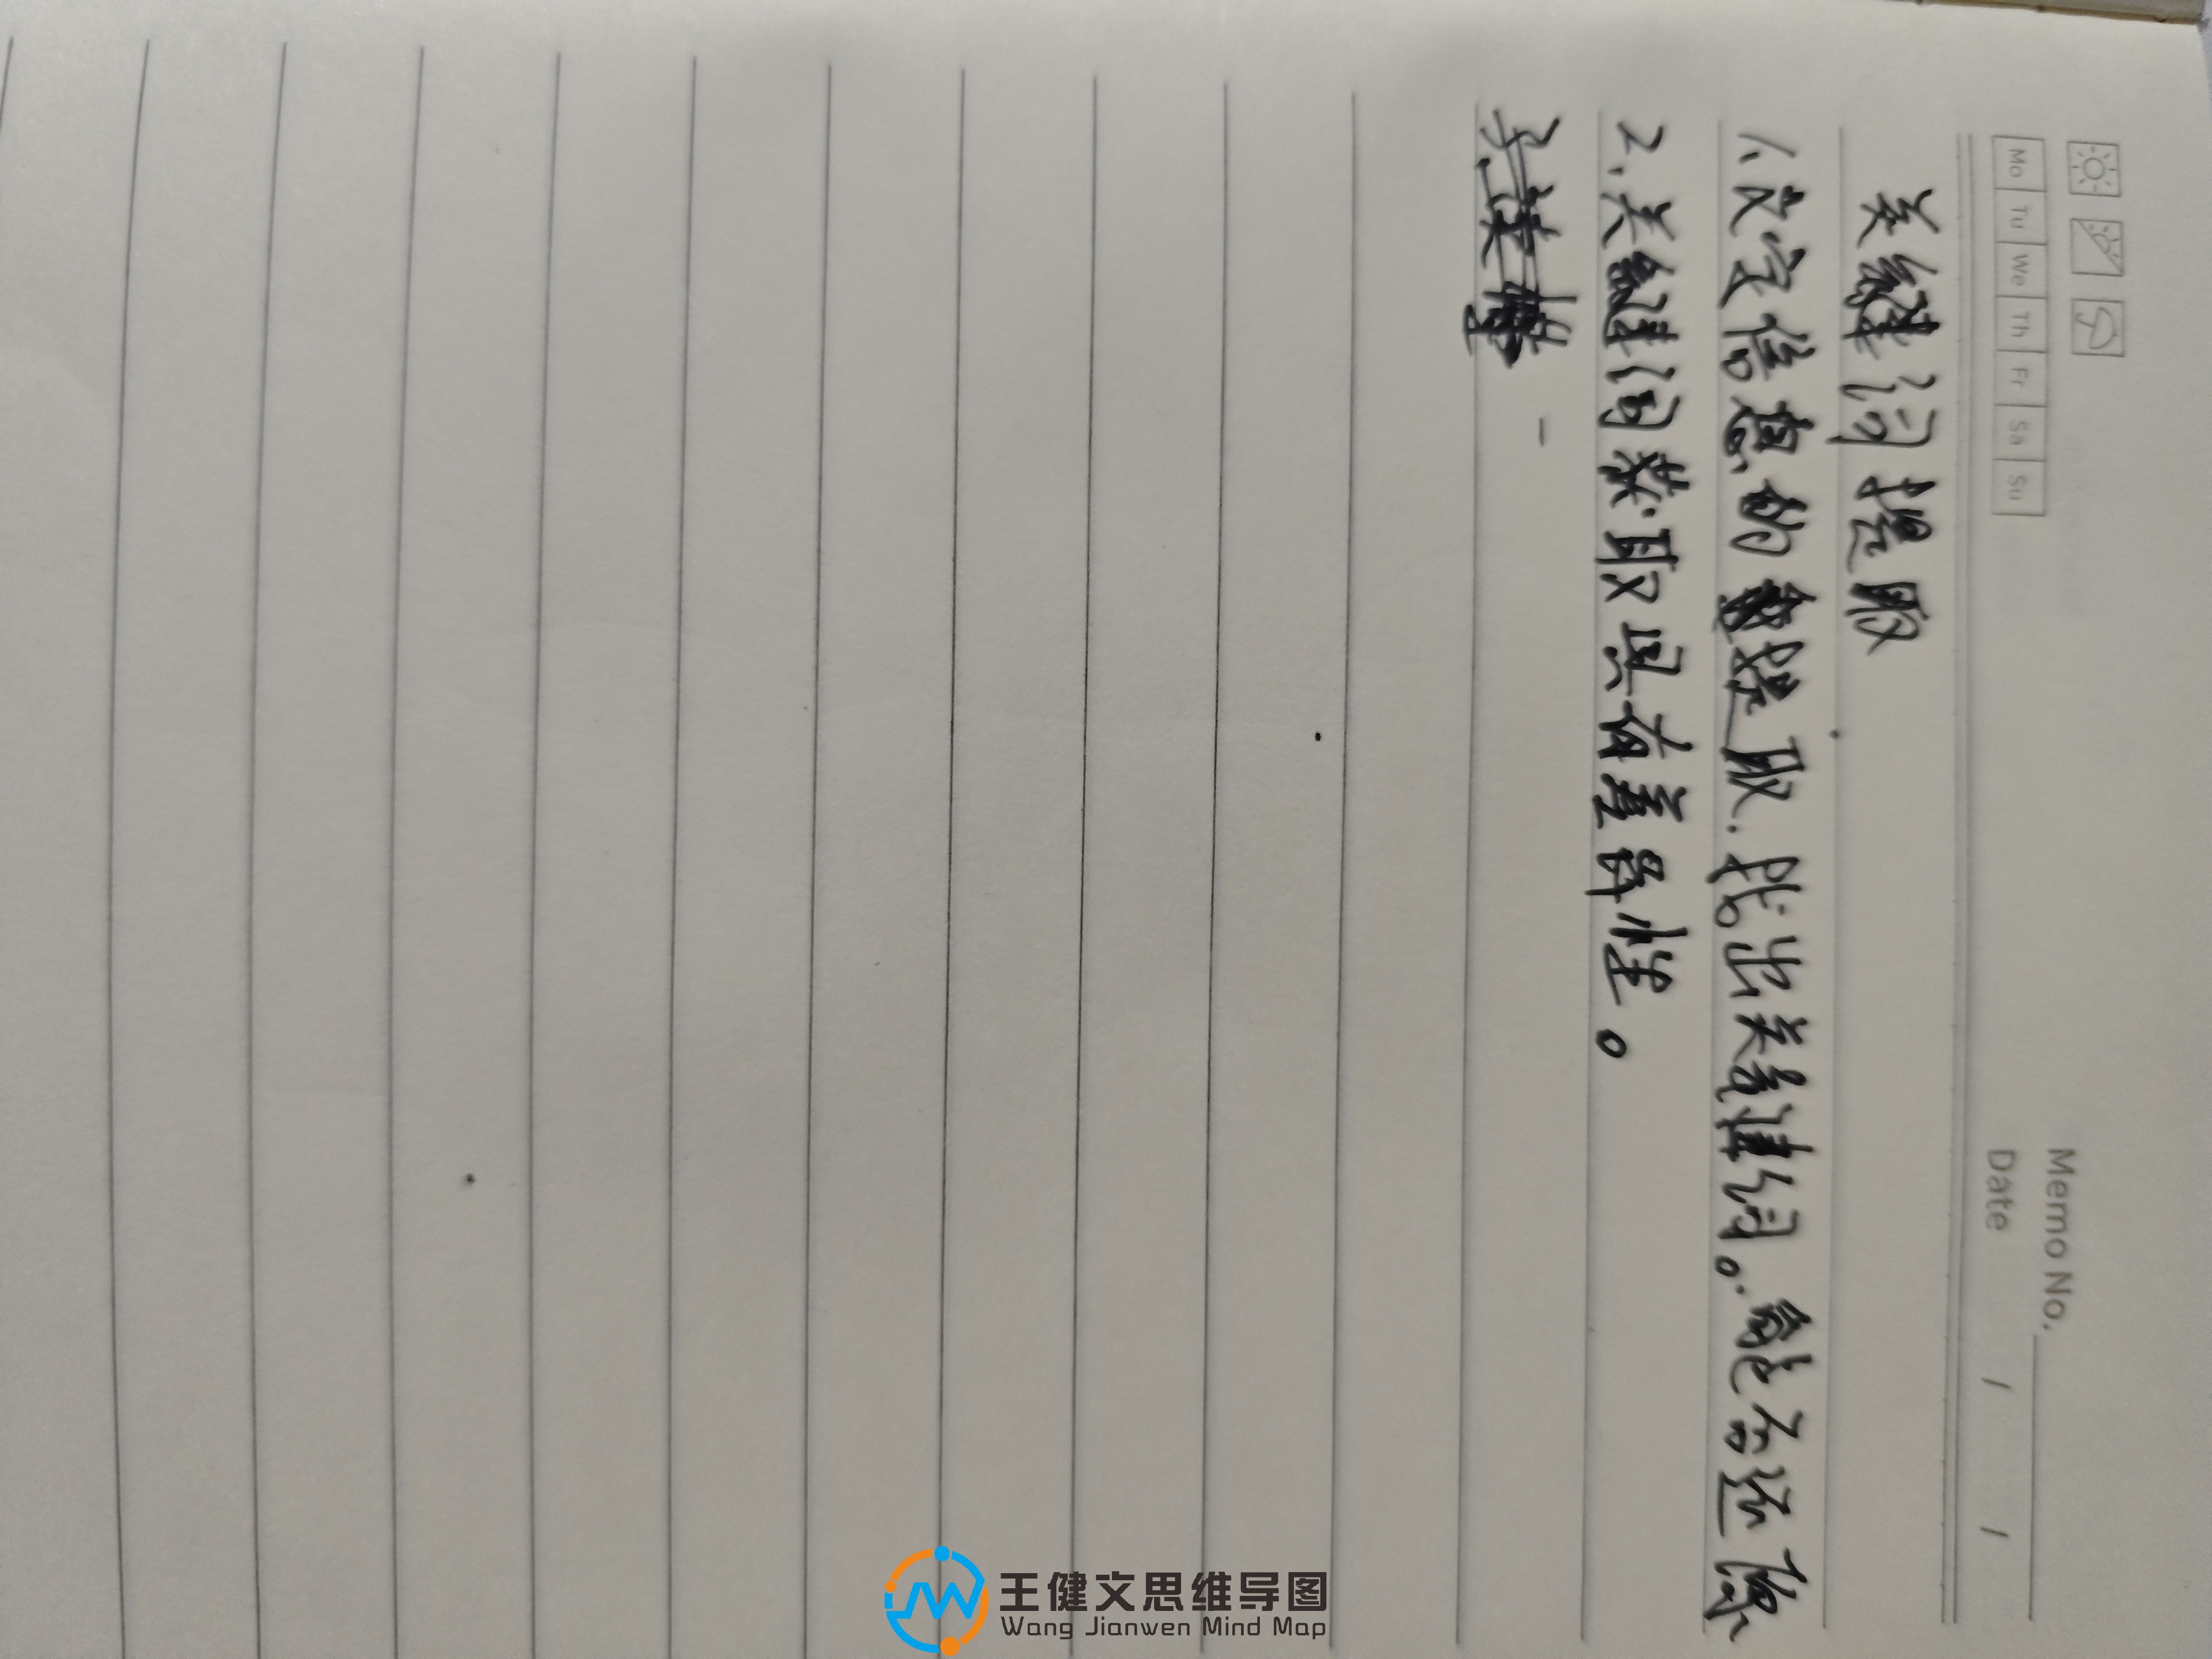 Memo No.
Mo Tu We Th Fr Sa Su
Date / /
关键词提取
1.文字信息的提取.找出关键词。能否还原
2.关键词获取具有差异性。
王健文思维导图
Wang Jianwen Mind Map